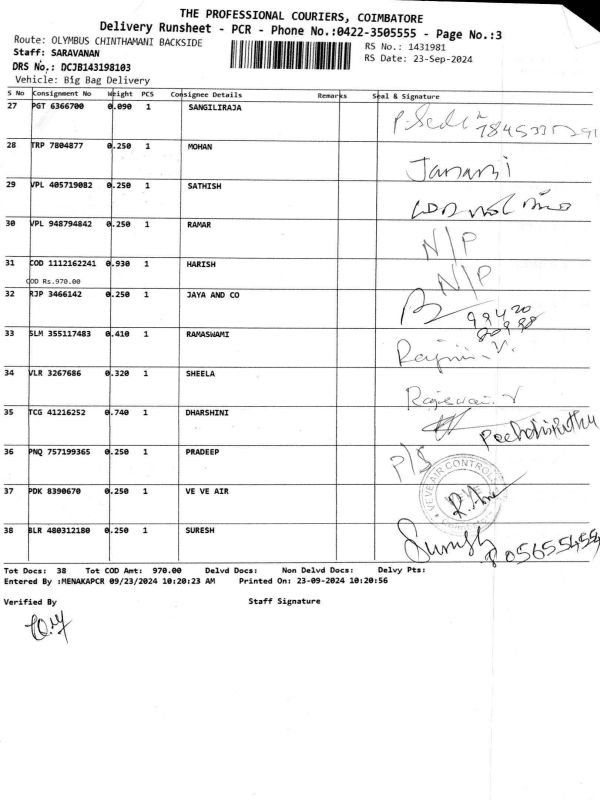 THE PROFESSIONAL COURIERS, COIMBATORE
Delivery Runsheet - PCR - Phone No.:0422-3505555 - Page No.:3
Route: OLYMBUS CHINTHAMANI BACKSIDE
RS No.: 1431981
Staff: SARAVANAN
RS Date: 23-Sep-2024
DRS No.: DCJB143198103
Vehicle: Big Bag Delivery
S No Consignment No Weight PCS Consignee Details Remarks Seal & Signature
27 PGT 6366700 0.090 1 SANGILIRAJA
28 TRP 7804877 0.250 1 MOHAN
29 VPL 405719082 0.250 1 SATHISH
30 VPL 948794842 0.250 1 RAMAR N/P
31 COD 1112162241 0.930 1 HARISH N/P
COD Rs.970.00
32 RJP 3466142 0.250 1 JAYA AND CO
33 SLM 355117483 0.410 1 RAMASWAMI
34 VLR 3267686 0.320 1 SHEELA
35 TCG 41216252 0.740 1 DHARSHINI
36 PNQ 757199365 0.250 1 PRADEEP P/S
37 PDK 8390670 0.250 1 VE VE AIR
38 BLR 480312180 0.250 1 SURESH
Tot Docs: 38 Tot COD Amt: 970.00 Delvd Docs: Non Delvd Docs: Delvy Pts:
Entered By :MENAKAPCR 09/23/2024 10:20:23 AM Printed On: 23-09-2024 10:20:56
Verified By Staff Signature